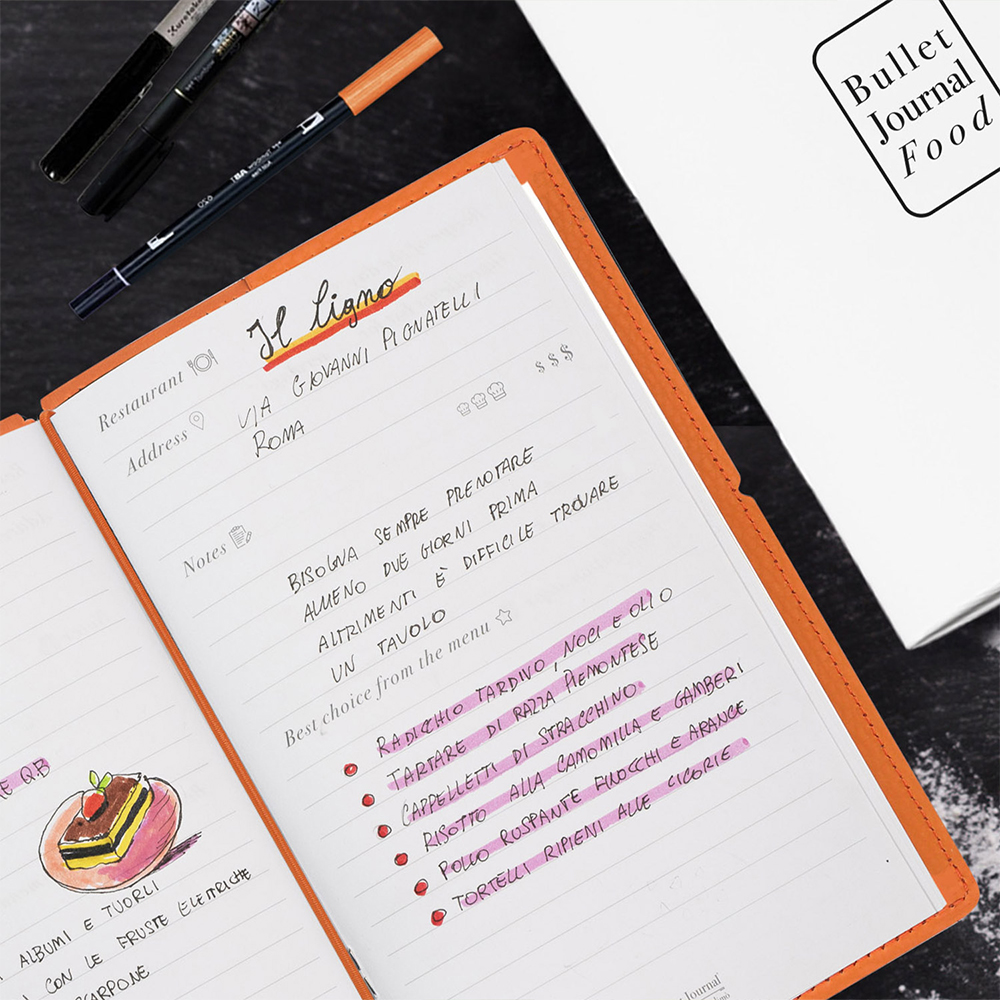 Bullet
Journal
Food
Tombow ABT
Restaurant
Il ligno
Address
VIA GIOVANNI PIGNATELLI
ROMA
$ $ $
Notes
BISOGNA SEMPRE PRENOTARE
ALMENO DUE GIORNI PRIMA
ALTRIMENTI È DIFFICILE TROVARE
UN TAVOLO
Best choice from the menu
RADICCHIO TARDIVO, NOCI E OLIO
TARTARE DI RAZZA PIEMONTESE
CAPPELLETTI DI STRACCHINO
RISOTTO ALLA CAMOMILLA E GAMBERI
POLLO RUSPANTE FINOCCHI E ARANCE
TORTELLI RIPIENI ALLE CICORIE
QB
ALBUMI E TUORLI
CON LE FRUSTE ELETTRICHE
Journal